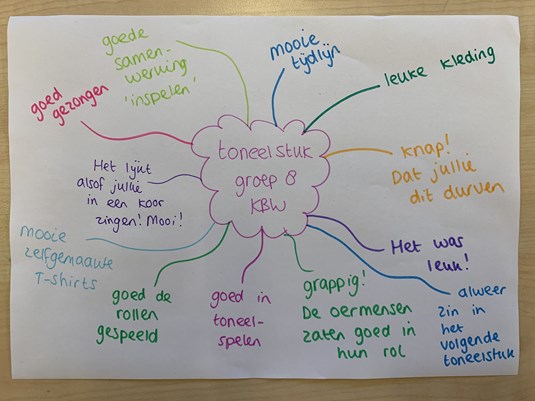 toneelstuk
groep 8
KBW
goede
samen-
werking
'inspelen'
mooie
tijdlijn
leuke kleding
knap!
Dat jullie
dit durven
Het was
leuk!
alweer
zin in
het
volgende
toneelstuk
grappig!
De oermensen
zaten goed in
hun rol
goed in
toneel-
spelen
goed de
rollen
gespeeld
mooie
zelfgemaakte
T-shirts
Het lijkt
alsof jullie
in een koor
zingen! Mooi!
goed
gezongen